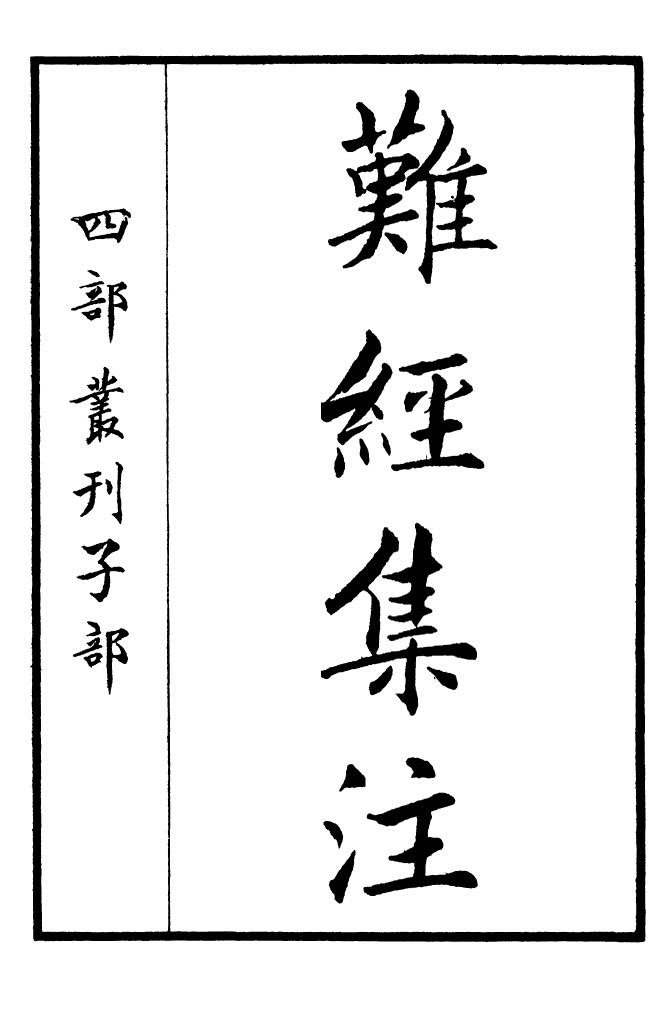 難經集注
四部叢刊子部